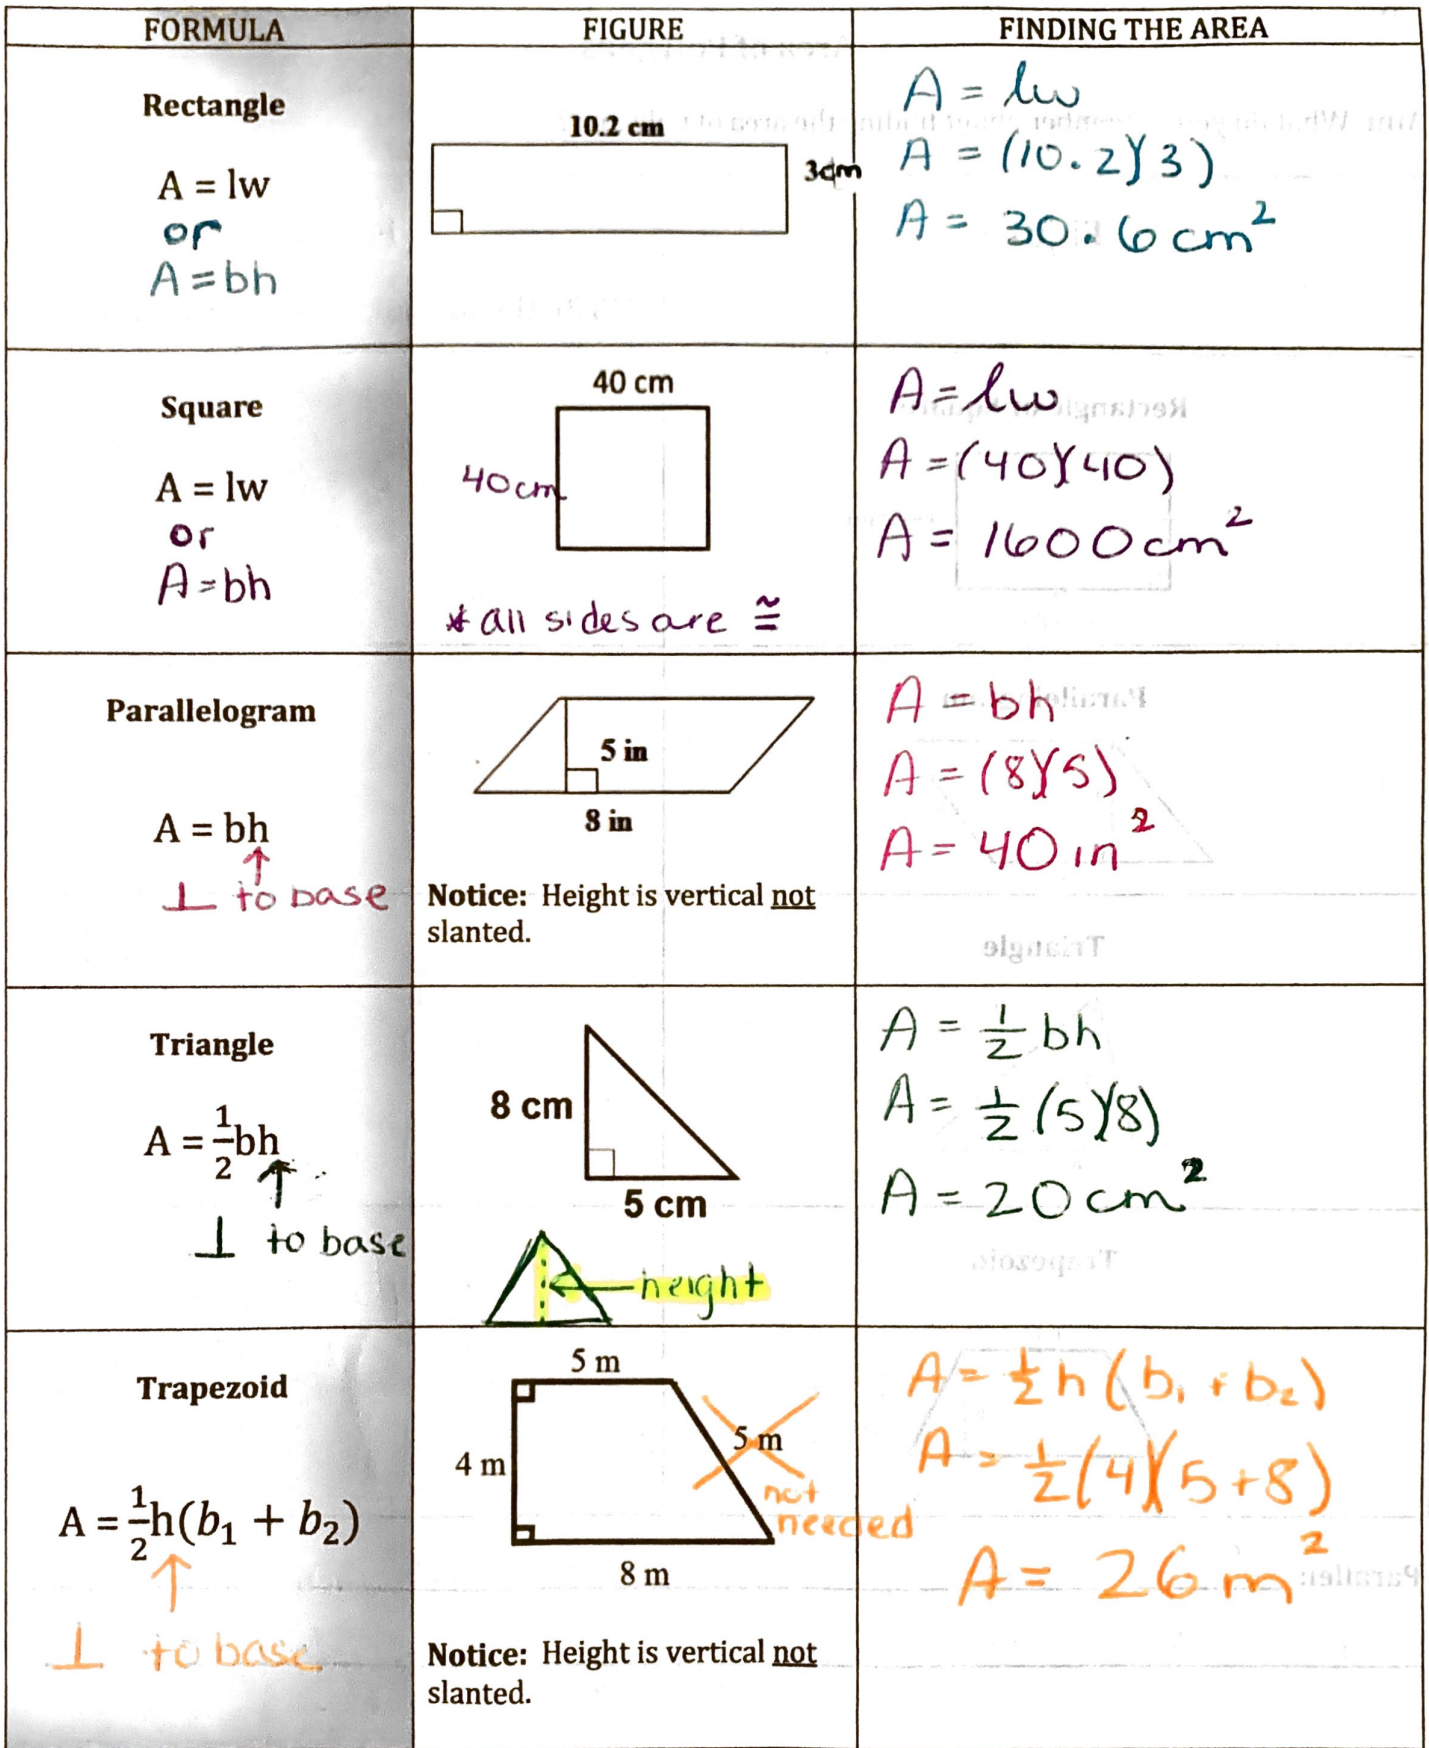 FORMULA
FIGURE
FINDING THE AREA
Rectangle
A = lw
or
A = bh
10.2 cm
3cm
A = lw
A = (10.2)(3)
A = 30.6 cm²
Square
A = lw
or
A = bh
40 cm
40cm
* all sides are ≅
A = lw
A = (40)(40)
A = 1600 cm²
Parallelogram
A = bh
↑
⊥ to base
5 in
8 in
Notice: Height is vertical not
slanted.
A = bh
A = (8)(5)
A = 40 in²
Triangle
Triangle
A = ½bh
↑
⊥ to base
8 cm
5 cm
height
A = ½ bh
A = ½ (5)(8)
A = 20 cm²
Trapezoid
Trapezoid
A = ½h(b₁ + b₂)
↑
⊥ to base
5 m
4 m
5 m
not
needed
8 m
Notice: Height is vertical not
slanted.
A = ½ h (b₁ + b₂)
A = ½ (4)(5+8)
A = 26 m²